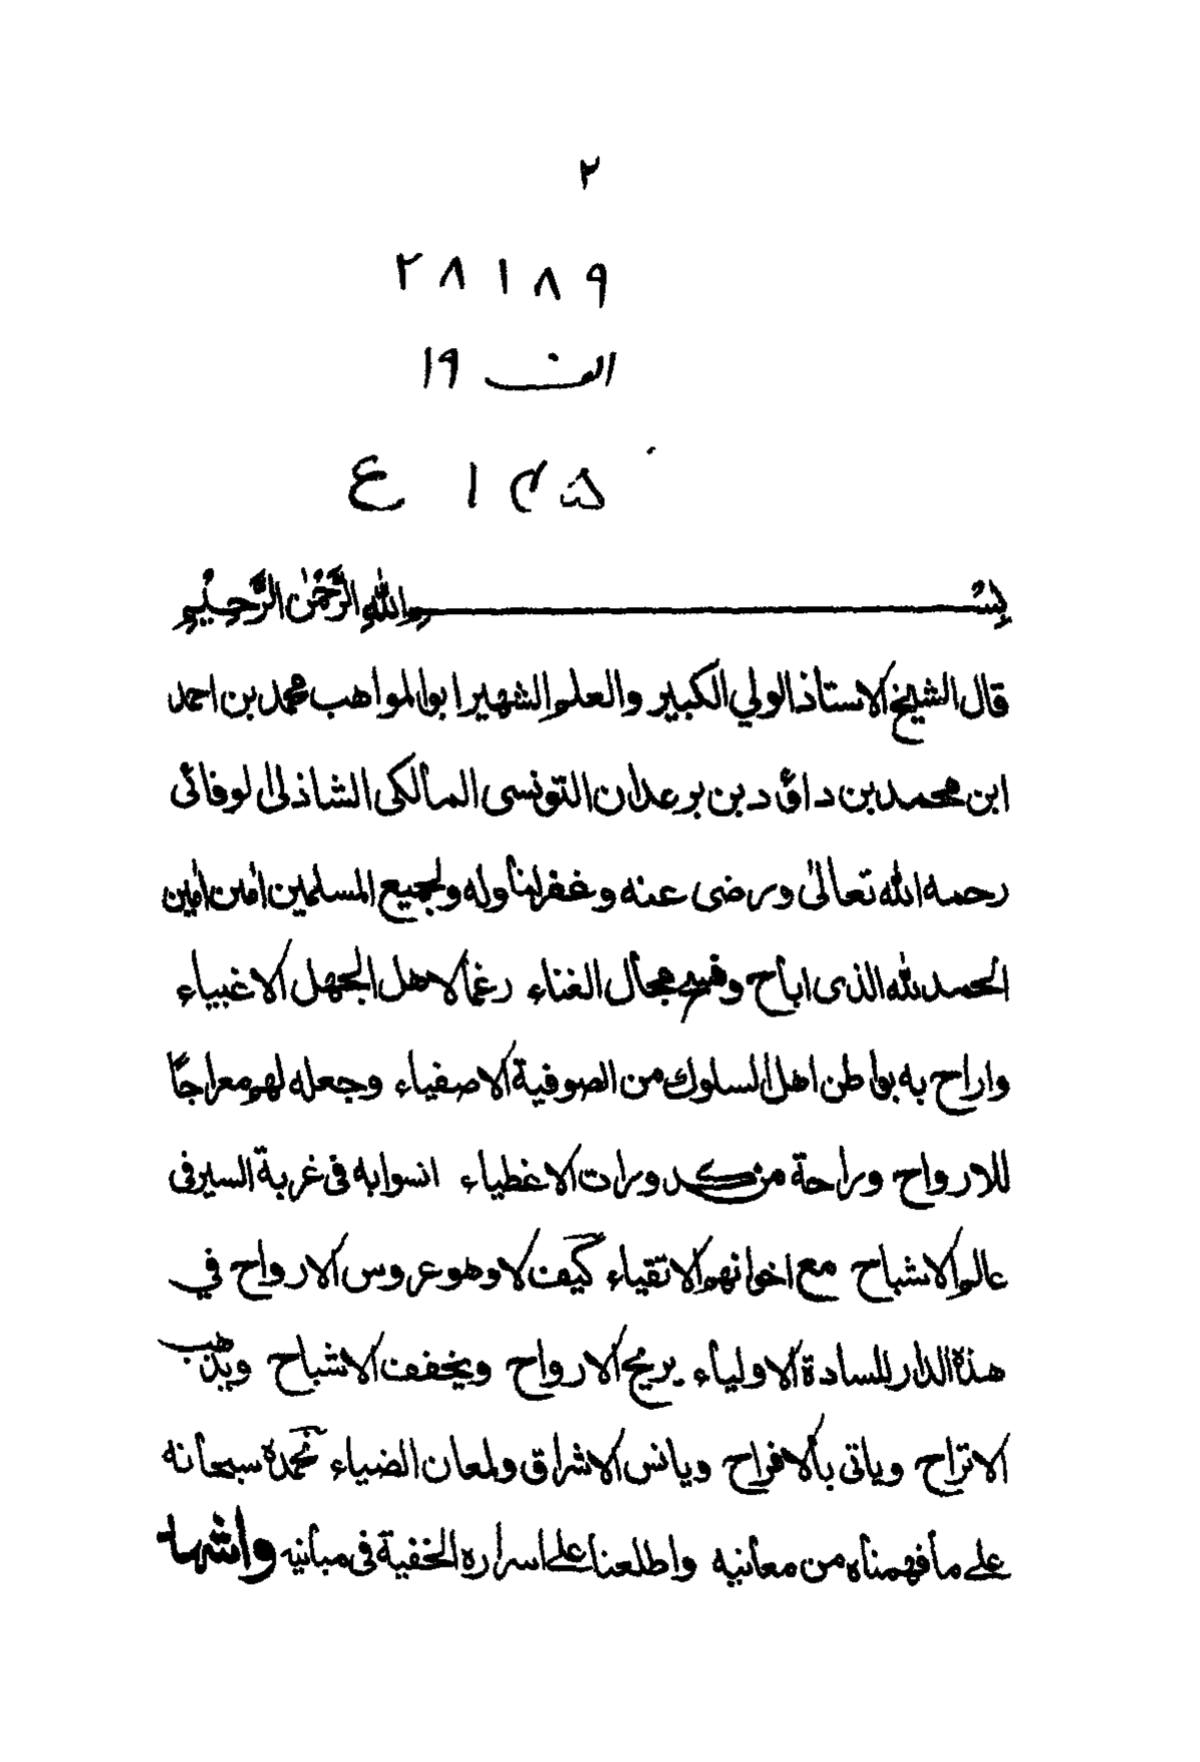 ٢
٢٨١٨٩
الف ١٩
ع
بسم الله الرحمن الرحيم
قال الشيخ الاستاذ الولي الكبير والعلم الشهير ابو المواهب محمد بن احمد
ابن محمد بن داؤد بن بر عدان التونسى المالكى الشاذلى الوفائى
رحمه الله تعالى ورضى عنه وغفر لنا وله ولجميع المسلمين امين امين
الحمد لله الذى اباح وفسح مجال الغناء رغما لاهل الجهل الاغبياء
واراح به بواطن اهل السلوك من الصوفية الاصفياء وجعله لهم معراجًا
للارواح وراحة من كدورات الاغطياء انسوا به فى غربة السير فى
عالم الاشباح مع اخوانهم الاتقياء كيف لا وهو عروس الارواح في
هذه الدار للسادة الاولياء يريح الارواح ويخفف الاشباح ويذهب
الاتراح وياتى بالافراح ويانس الاشراق ولمعان الضياء نحمده سبحانه
على ما فهمناه من معانيه واطلعنا على اسراره الخفية فى مبانيه واشهد